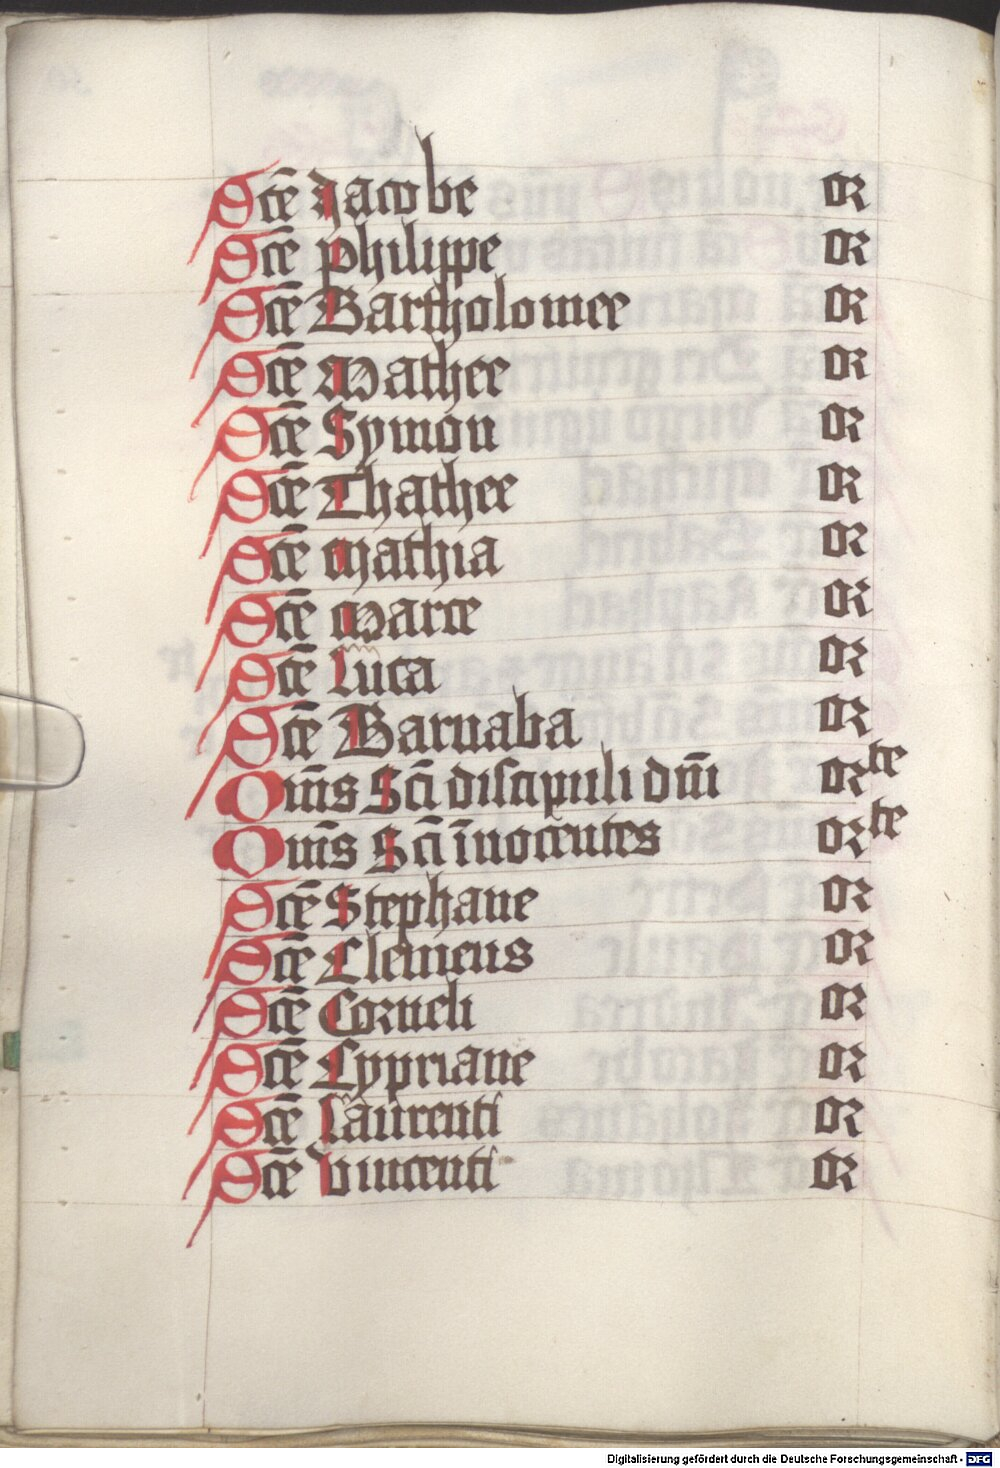 Scē Jacobe or
Scē philippe or
Scē Bartholomee or
Scē Mathee or
Scē Symon or
Scē Thathee or
Scē mathia or
Scē Marce or
Scē Luca or
Scē Barnaba or
Om̄s Scī discipuli dn̄i orte
Om̄s Scī īnocentes orte
Scē Stephane or
Scē Clemens or
Scē Corneli or
Scē Cypriane or
Scē Laurenti or
Scē Vincenti or
Digitalisierung gefördert durch die Deutsche Forschungsgemeinschaft - DFG